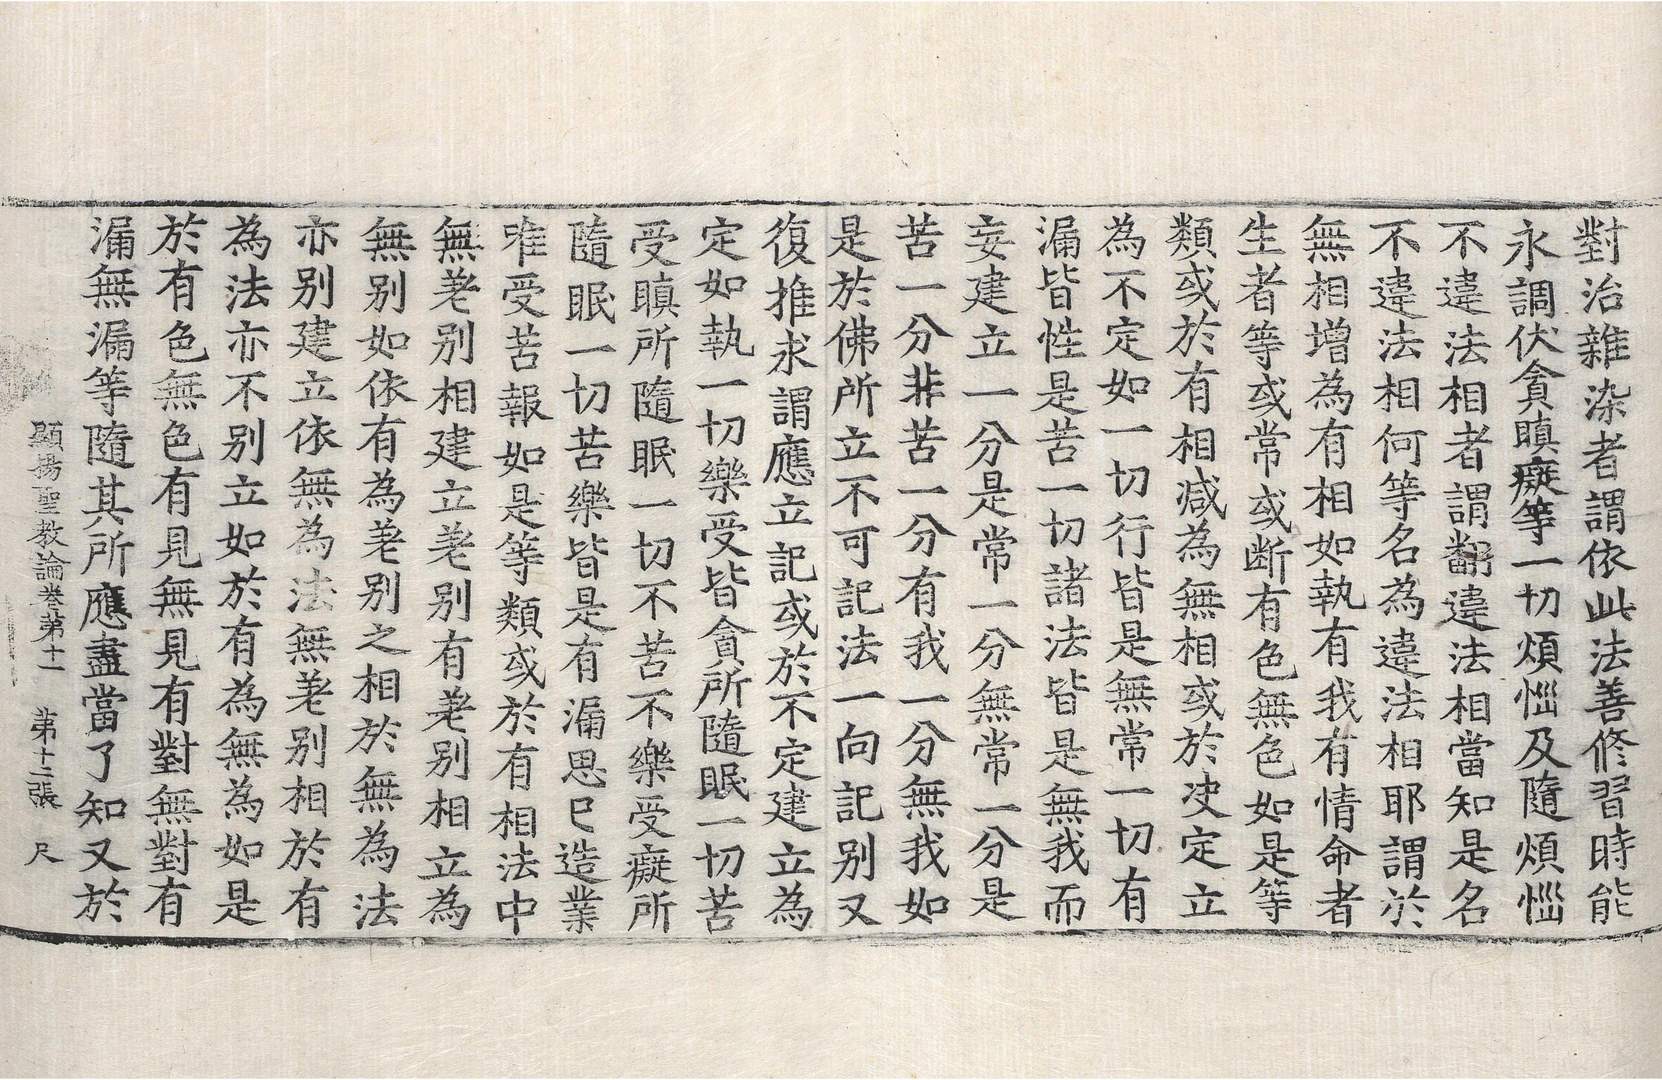 對治雜染者謂依此法善修習時能
永調伏貪瞋癡等一切煩惱及隨煩惱
不違法相者謂翻違法相當知是名
不違法相何等名為違法相耶謂於
無相增為有相如執有我有情命者
生者等或常或断有色無色如是等
類或於有相减為無相或於决定立
為不定如一切行皆是無常一切有
漏皆性是苦一切諸法皆是無我而
妄建立一分是常一分無常一分是
苦一分非苦一分有我一分無我如
是於佛所立不可記法一向記别又
復推求謂應立記或於不定建立為
定如執一切樂受皆貪所隨眠一切苦
受瞋所隨眠一切不苦不樂受癡所
隨眠一切苦樂皆是有漏思已造業
唯受苦報如是等類或於有相法中
無差别相建立差别有差别相立為
無别如依有為差别之相於無為法
亦别建立依無為法無差别相於有
為法亦不别立如於有為無為如是
於有色無色有見無見有對無對有
漏無漏等隨其所應盡當了知又於
顯揚聖教論卷第十一　第十二張　尺